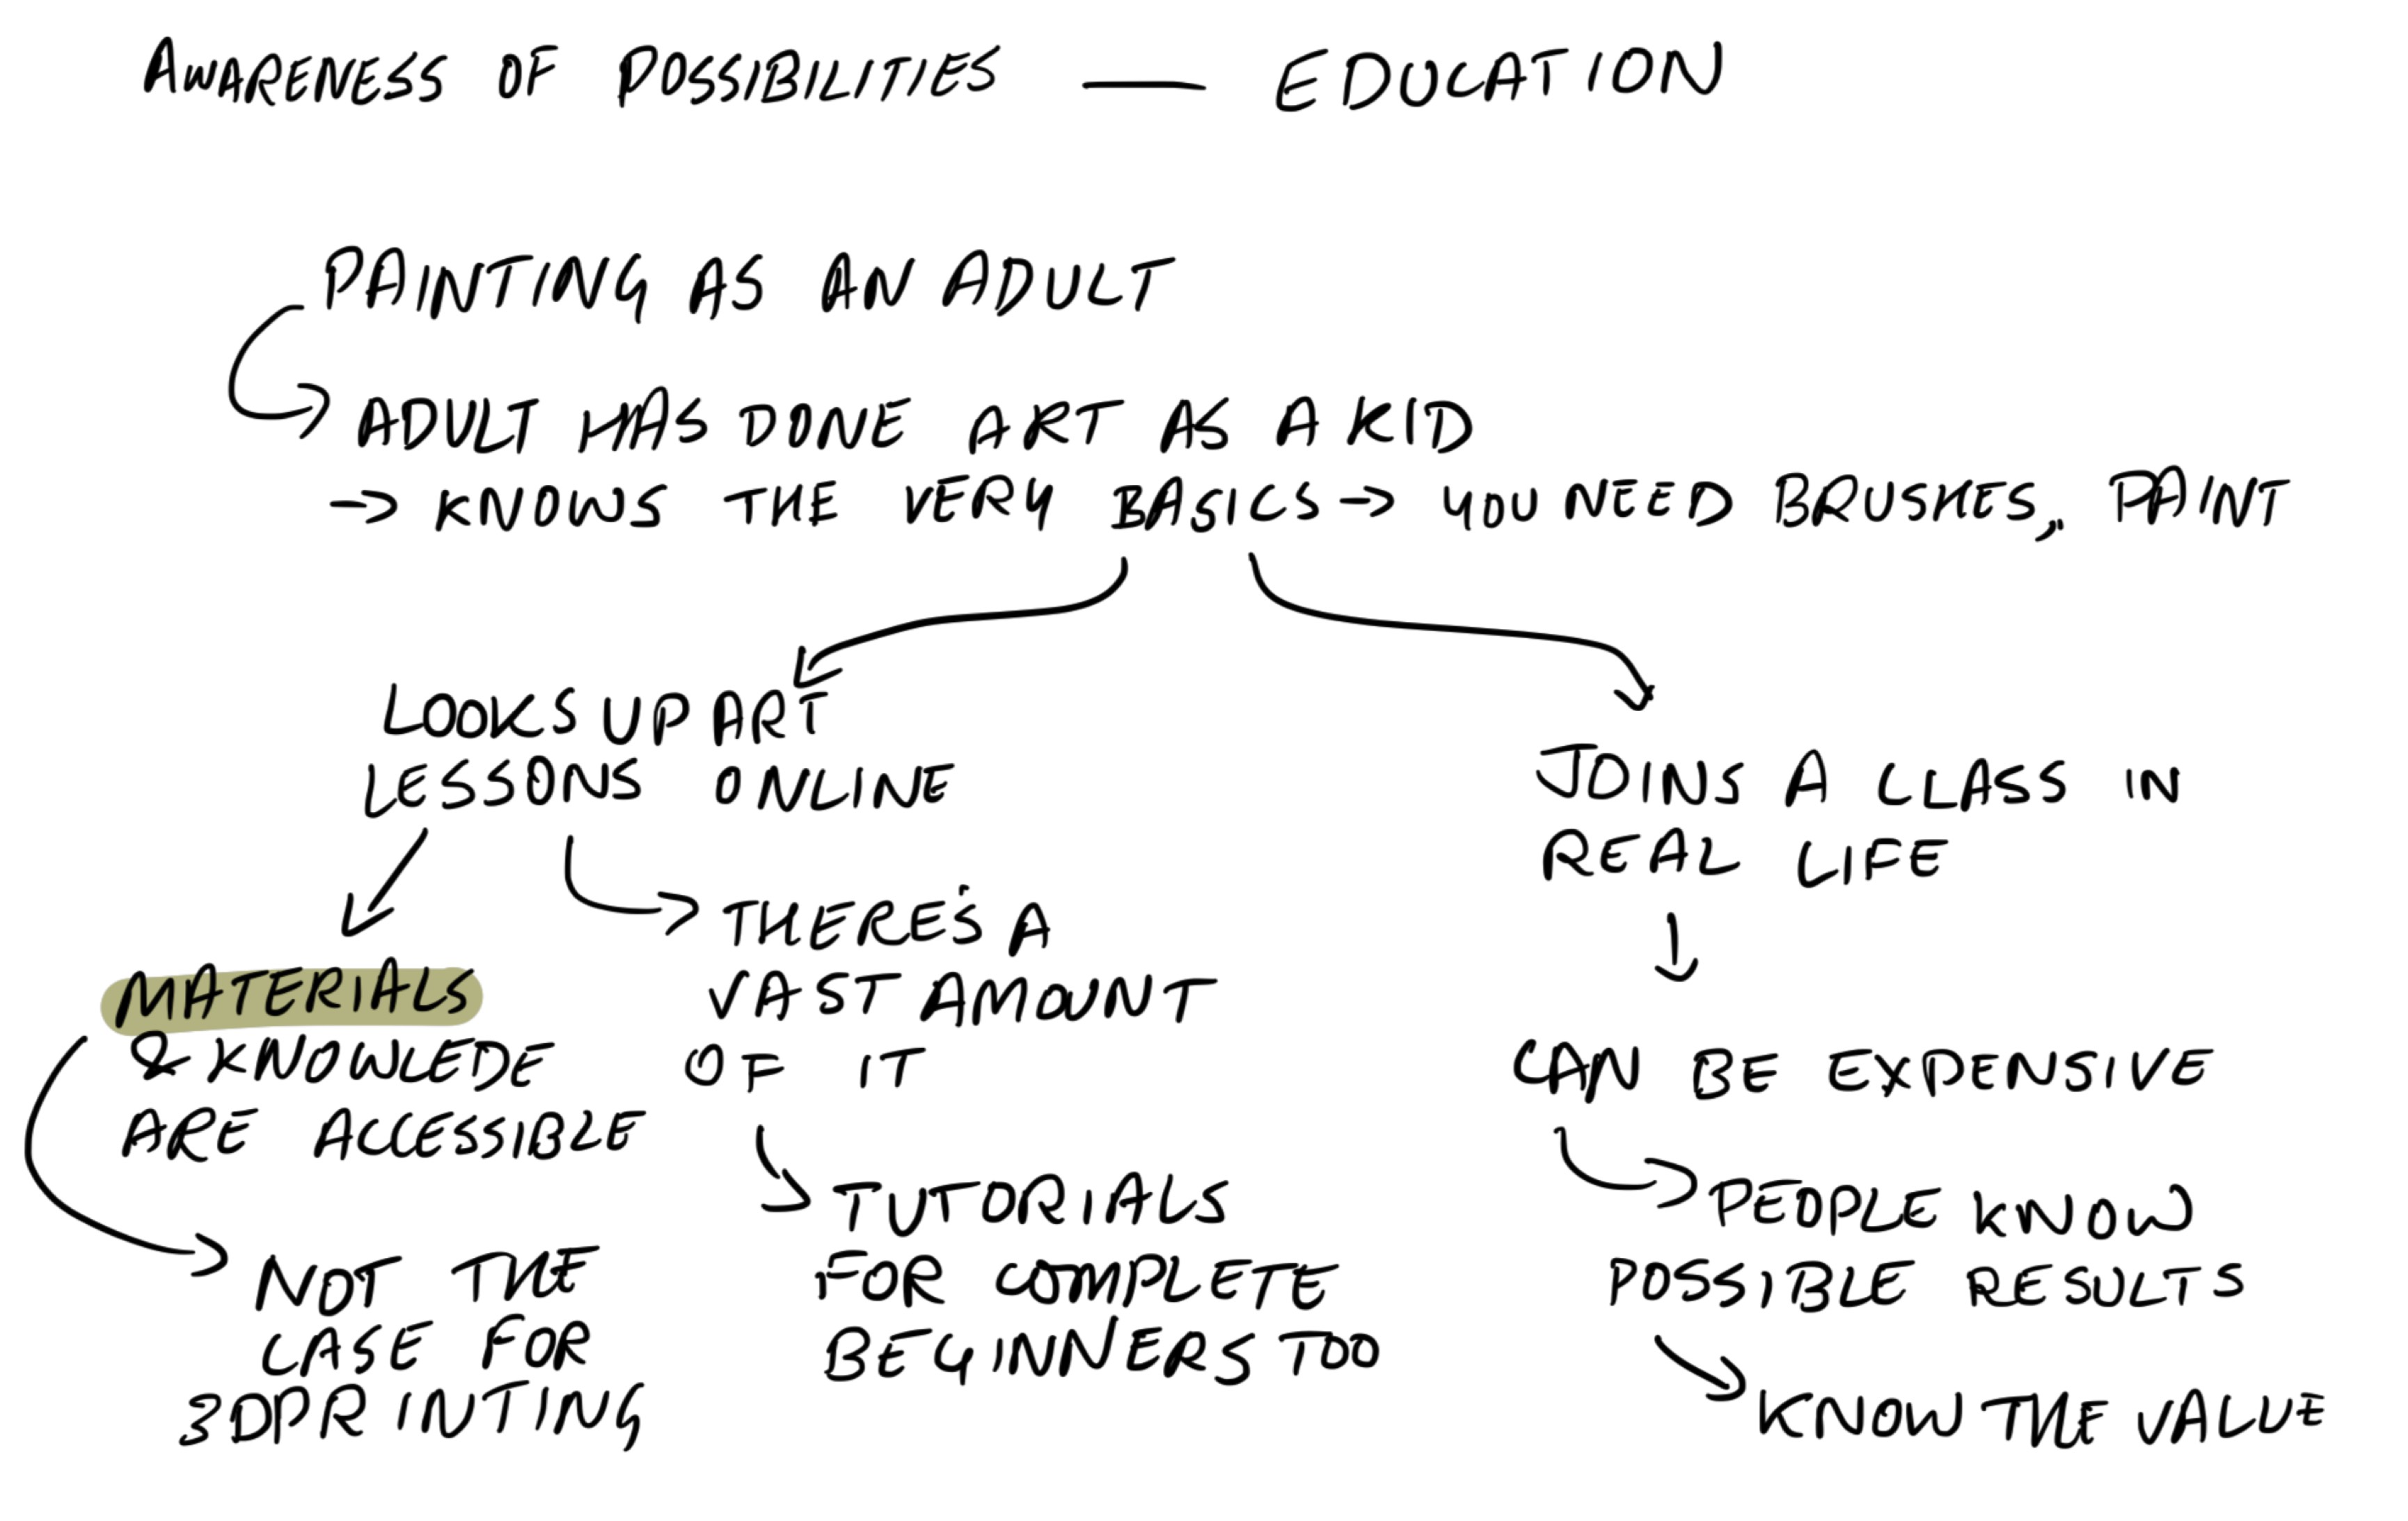 AWARENESS OF POSSIBILITIES — EDUCATION
PAINTING AS AN ADULT
ADULT HAS DONE ART AS A KID
→ KNOWS THE VERY BASICS → YOU NEED BRUSHES,, PAINT
LOOKS UP ART
LESSONS ONLINE
MATERIALS
& KNOWLEDE
ARE ACCESSIBLE
NOT THE
CASE FOR
3DPRINTING
THERE'S A
VAST AMOUNT
OF IT
TUTORIALS
FOR COMPLETE
BEGINNERS TOO
JOINS A CLASS IN
REAL LIFE
CAN BE EXPENSIVE
PEOPLE KNOW
POSSIBLE RESULTS
KNOW THE VALUE